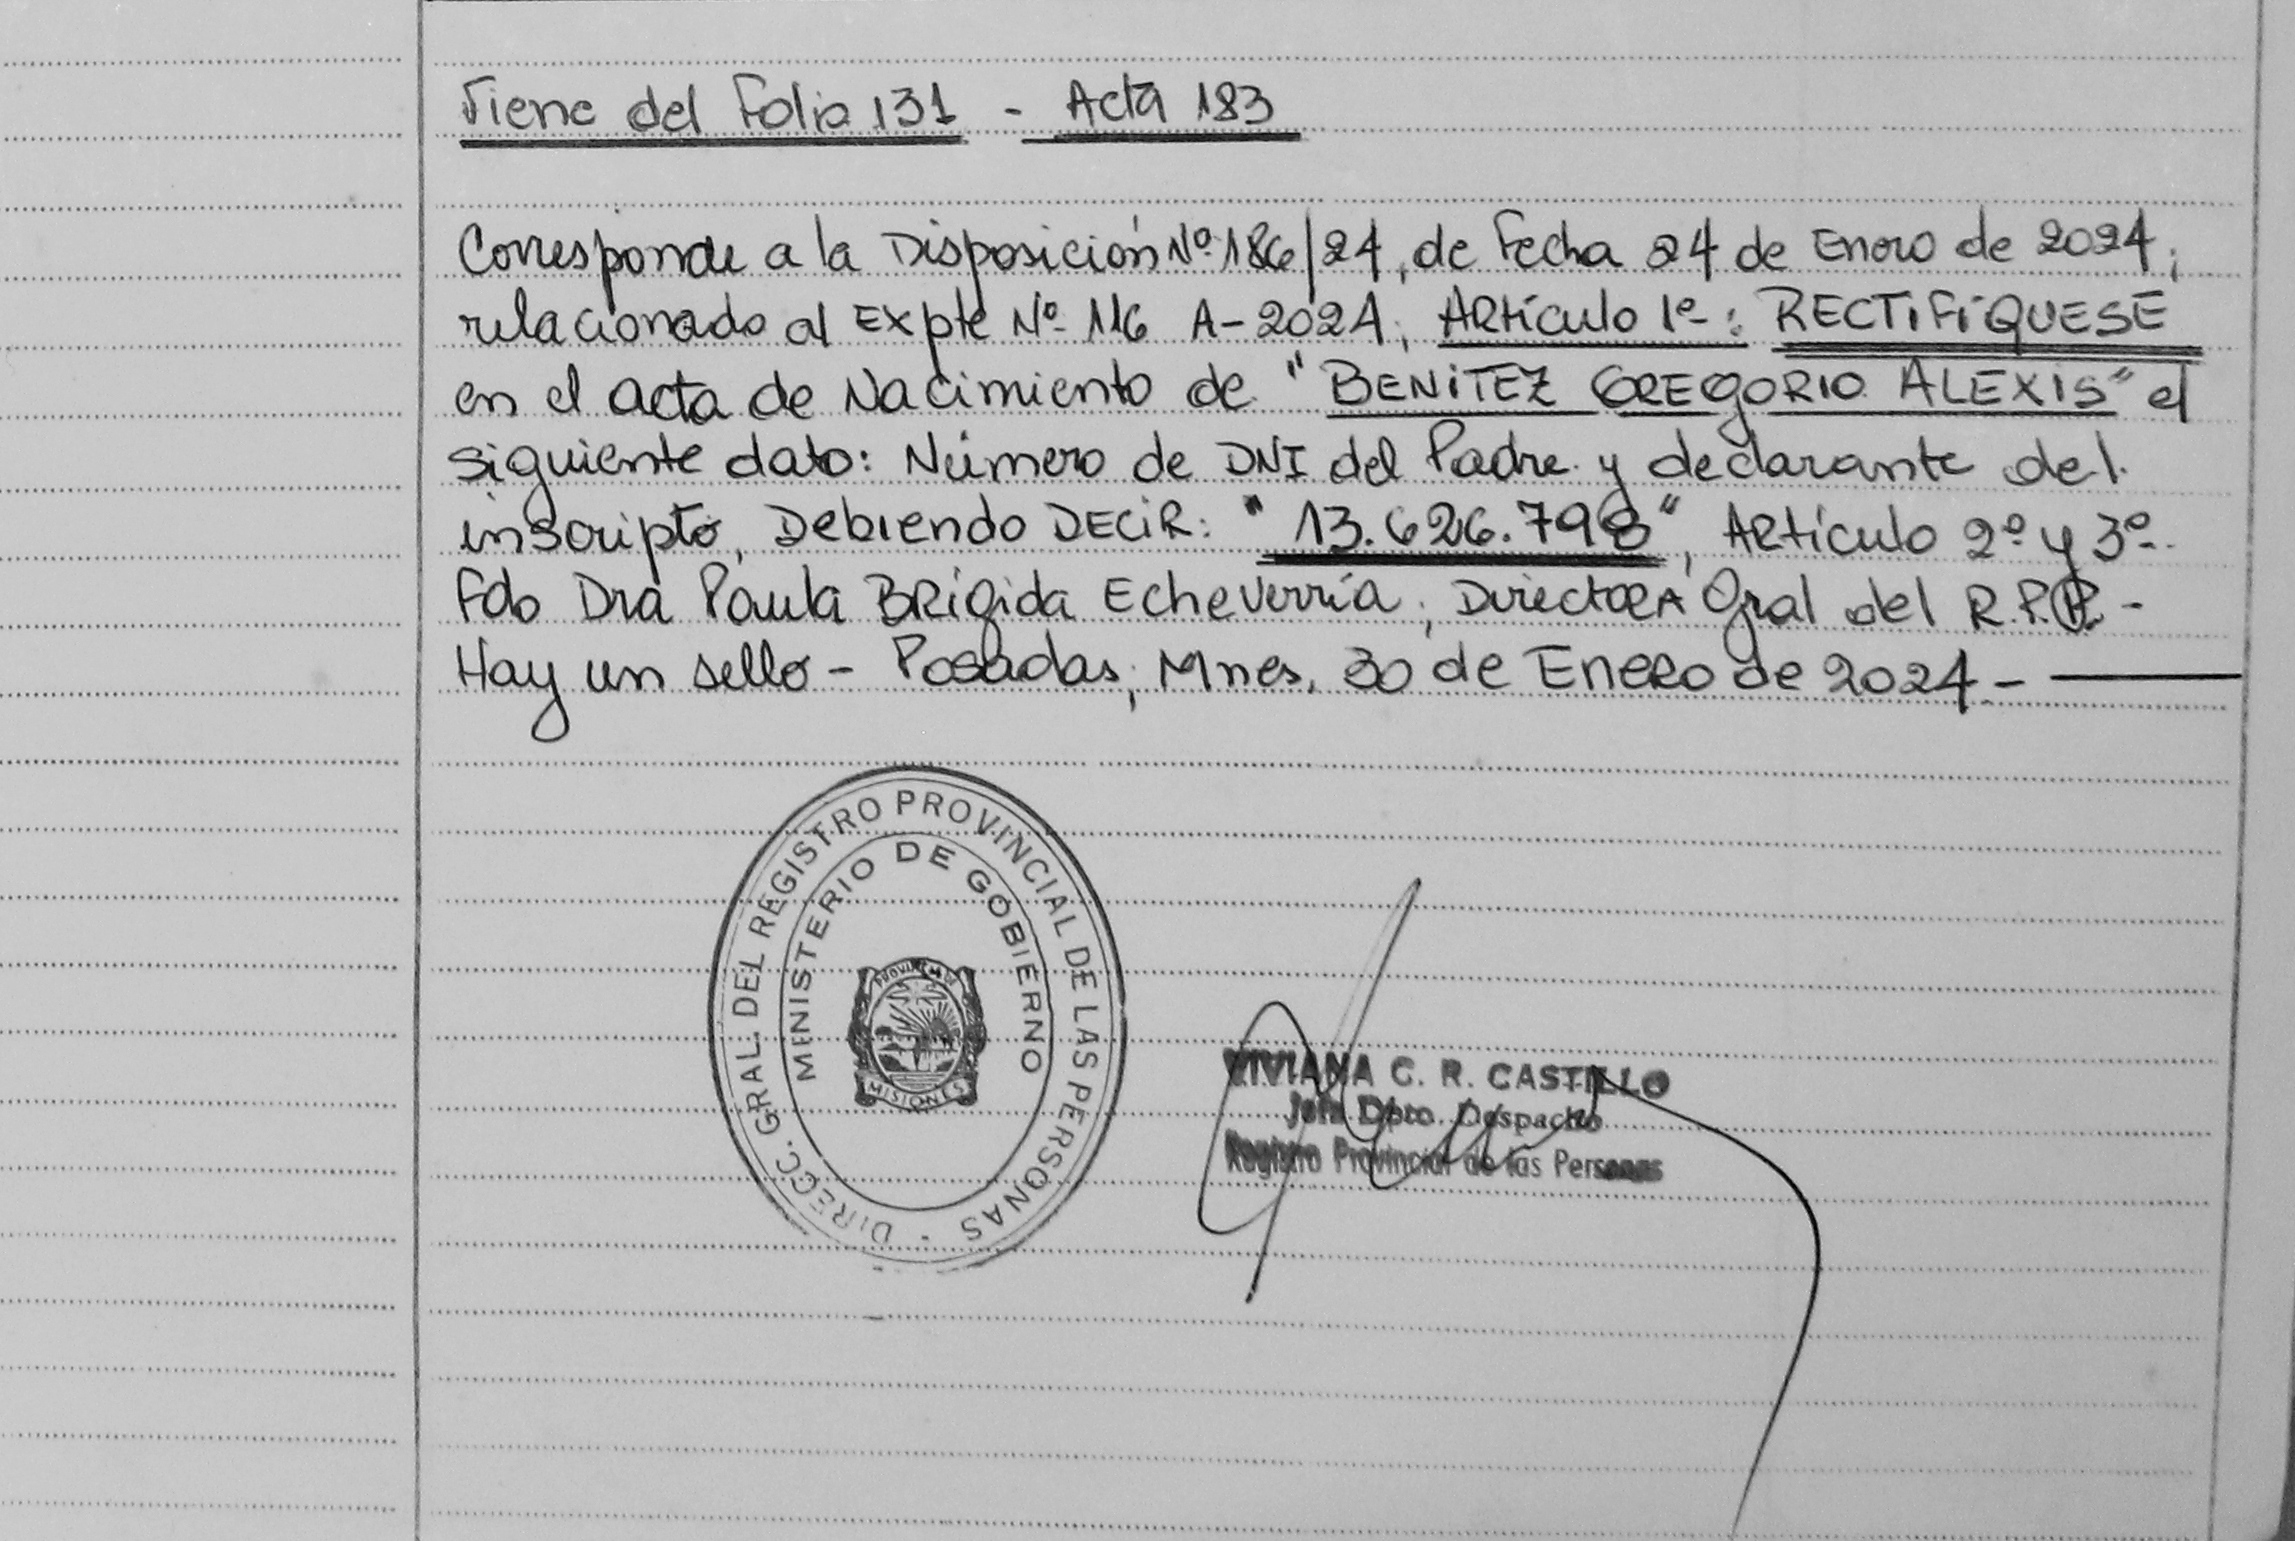 Viene del Folio 131 - Acta 183
Corresponde a la Disposición Nº 186/24, de Fecha 24 de Enero de 2024,
relacionado al Expte Nº 116 A-2024, Artículo 1º: RECTIFÍQUESE
en el acta de Nacimiento de "BENITEZ GREGORIO ALEXIS" el
siguiente dato: Número de DNI del Padre y declarante del
inscripto, Debiendo DECIR: "13.626.798", Artículo 2º y 3º.
Fdo Dra Paula Brígida Echeverría, Directora Gral del R.P.P. -
Hay un sello - Posadas, Mnes, 30 de Enero de 2024 -
DIRECC. GRAL. DEL REGISTRO PROVINCIAL DE LAS PERSONAS
MINISTERIO DE GOBIERNO
PROVINCIA DE
MISIONES
VIVIANA C. R. CASTILLO
Jefa Dpto. Despacho
Registro Provincial de las Personas